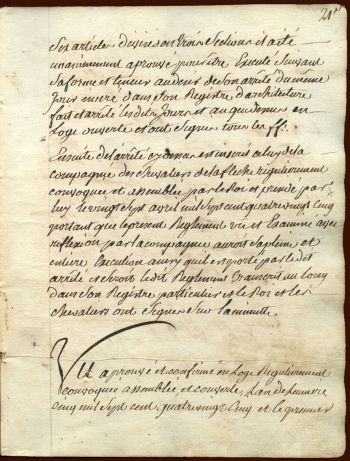 21
Six articles divisés en trois Sections et a été
unanimement aprouvé pour être Executé Suivant
Sa forme et teneur au desir de Son arrêté du même
Jour inseré dans Son Registre d'architecture
fait et arrêté les dits Jours et an que dessus en
Loge ouverte et ont Signés tous les ff:
Ensuite de l'arrêté cy dessus est inscrit celuy de la
compagnie des Chevaliers de la fleche regulierement
convoquée et assemblée par le Roi et presidée par
luy le vingt Sept avril mil Sept cent quatre vingt Cinq
portant que le present Reglement vu et Examiné avec
reflexion par la compagnie auroit Sa pleine et
entiere Execution ainsy qu'il est porté par le dit
arrêté et Seroit le dit Reglement transcrit au long
dans Son Registre particulier et le Roi et les
Chevaliers ont Signés Sur la minutte.
Vu aprouvé et confirmé en Loge Regulierement
convoquée assemblée et couverte, L'an de Lumiere
Cinq mil Sept cent quatre vingt Cinq et le premier